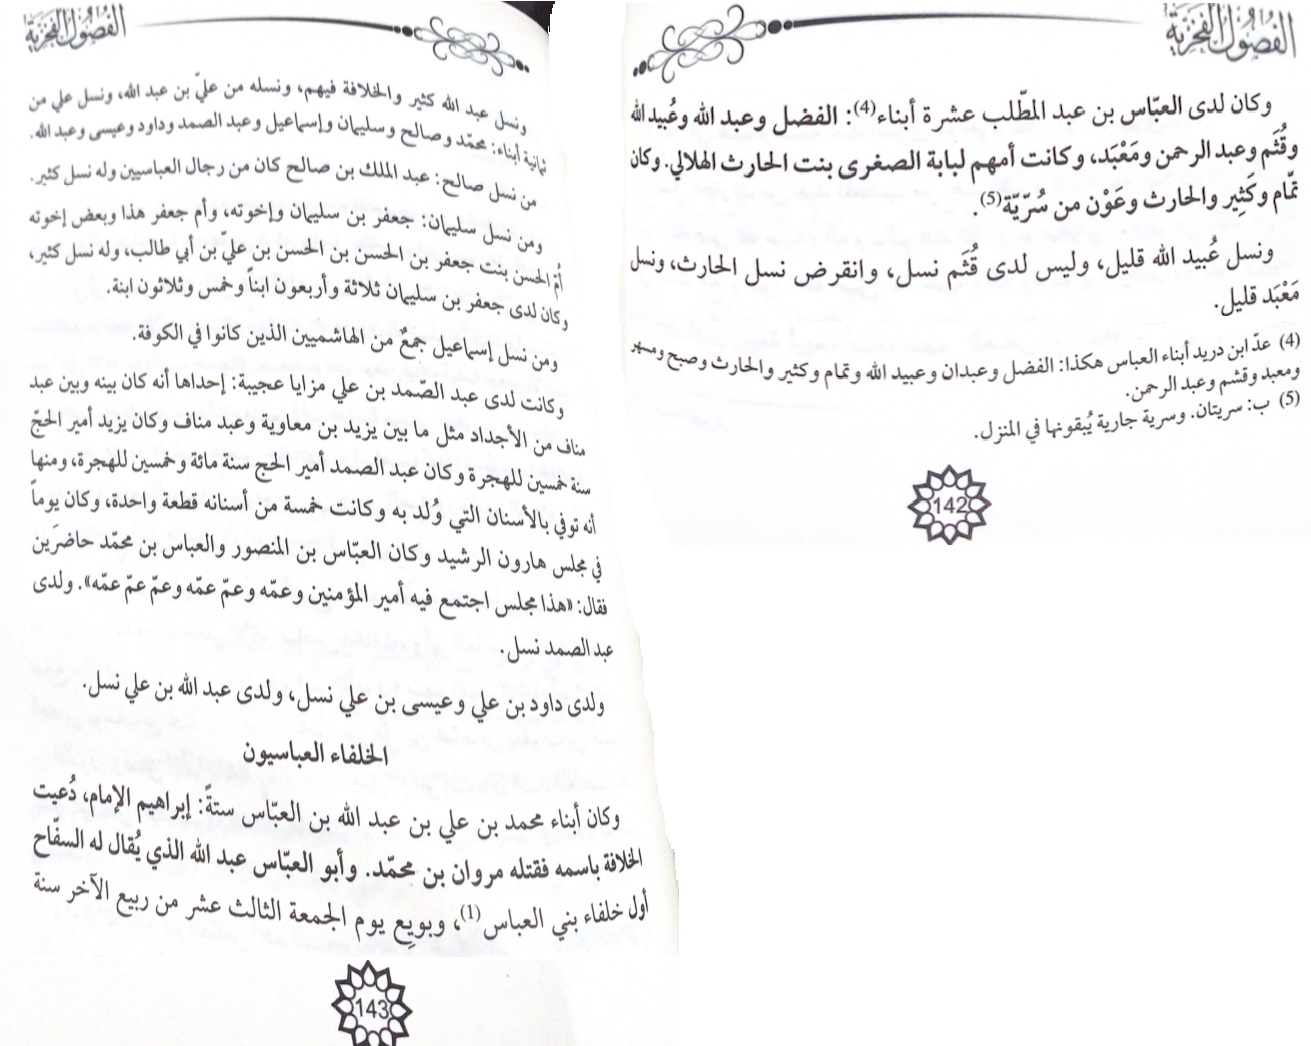 الفصول الفخرية
وكان لدى العبّاس بن عبد المطّلب عشرة أبناء(4): الفضل وعبد الله وعُبيد الله
وقُثَم وعبد الرحمن ومَعْبَد، وكانت أمهم لبابة الصغرى بنت الحارث الهلالي. وكان
تمّام وكَثِير والحارث وعَوْن من سُرّيّة(5).
ونسل عُبيد الله قليل، وليس لدى قُثَم نسل، وانقرض نسل الحارث، ونسل
مَعْبَد قليل.
(4) عدّ ابن دريد أبناء العباس هكذا: الفضل وعبدان وعبيد الله وتمام وكثير والحارث وصبح ومسهر
ومعبد وقشم وعبد الرحمن.
(5) ب: سريتان. وسرية جارية يُبقونها في المنزل.
142
الفصول الفخرية
ونسل عبد الله كثير والخلافة فيهم، ونسله من عليّ بن عبد الله، ونسل علي من
ثمانية أبناء: محمّد وصالح وسليمان وإسماعيل وعبد الصمد وداود وعيسى وعبد الله.
من نسل صالح: عبد الملك بن صالح كان من رجال العباسيين وله نسل كثير.
ومن نسل سليمان: جعفر بن سليمان وإخوته، وأم جعفر هذا وبعض إخوته
أُمّ الحسن بنت جعفر بن الحسن بن الحسن بن عليّ بن أبي طالب، وله نسل كثير،
وكان لدى جعفر بن سليمان ثلاثة وأربعون ابناً وخمس وثلاثون ابنة.
ومن نسل إسماعيل جمعٌ من الهاشميين الذين كانوا في الكوفة.
وكانت لدى عبد الصّمد بن علي مزايا عجيبة: إحداها أنه كان بينه وبين عبد
مناف من الأجداد مثل ما بين يزيد بن معاوية وعبد مناف وكان يزيد أمير الحجّ
سنة خمسين للهجرة وكان عبد الصمد أمير الحج سنة مائة وخمسين للهجرة، ومنها
أنه توفي بالأسنان التي وُلد به وكانت خمسة من أسنانه قطعة واحدة، وكان يوماً
في مجلس هارون الرشيد وكان العبّاس بن المنصور والعباس بن محمّد حاضرَين
فقال: «هذا مجلس اجتمع فيه أمير المؤمنين وعمّه وعمّ عمّه وعمّ عمّ عمّه». ولدى
عبد الصمد نسل.
ولدى داود بن علي وعيسى بن علي نسل، ولدى عبد الله بن علي نسل.
الخلفاء العباسيون
وكان أبناء محمد بن علي بن عبد الله بن العبّاس ستةً: إبراهيم الإمام، دُعيت
الخلافة باسمه فقتله مروان بن محمّد. وأبو العبّاس عبد الله الذي يُقال له السفّاح
أول خلفاء بني العباس(1)، وبويع يوم الجمعة الثالث عشر من ربيع الآخر سنة
143